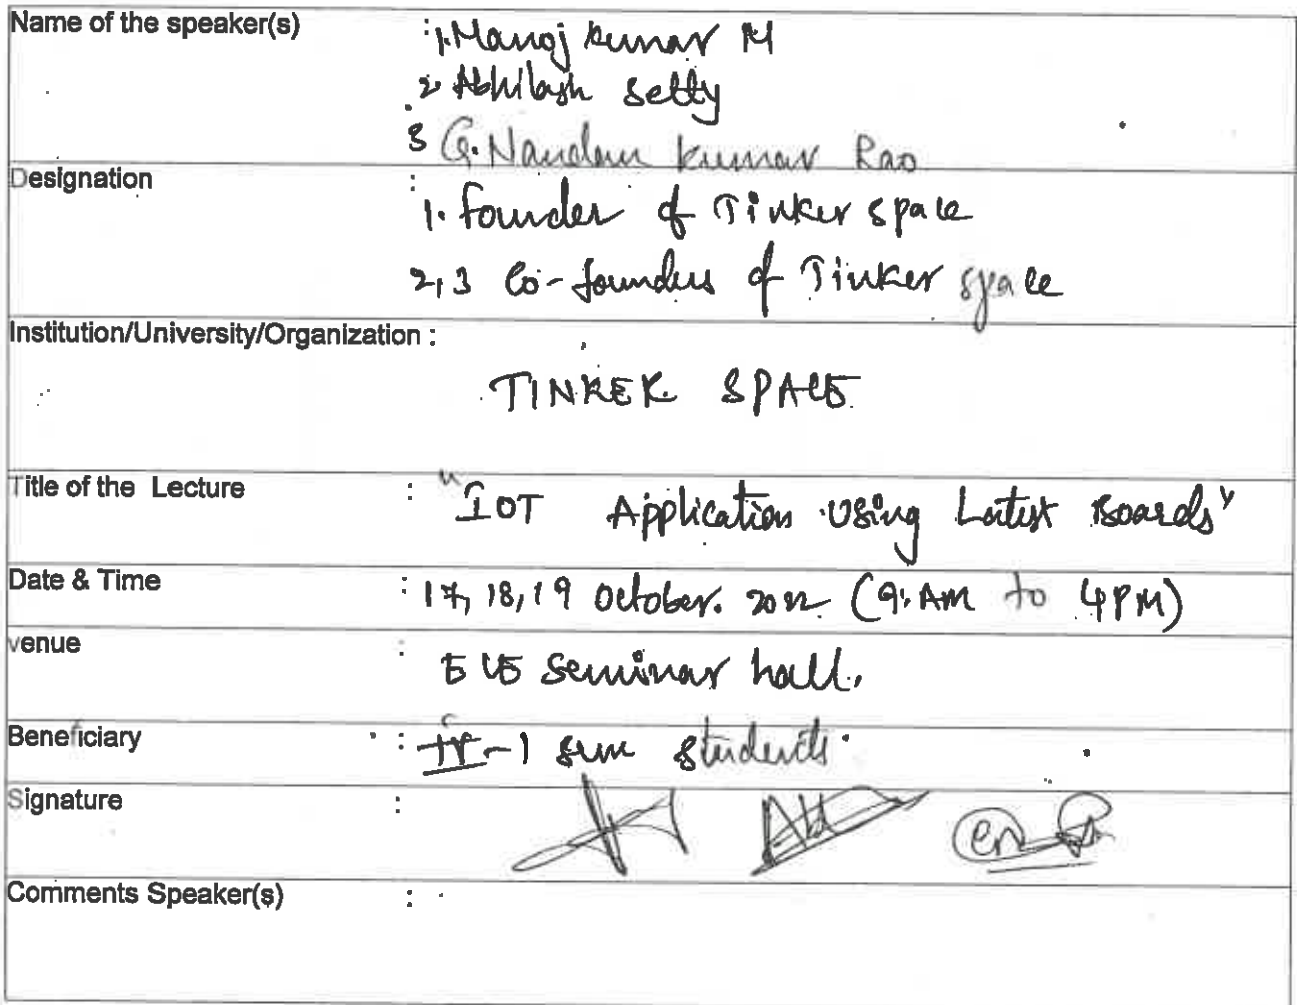 Name of the speaker(s) : 1. Manoj kumar M
2. Abhilash setty
3 G. Nandan kumar Rao
Designation :
1. founder of Tinker space
2,3 Co-founders of Tinker space
Institution/University/Organization :
TINKER SPACE
Title of the Lecture : "IOT Application Using Latest Boards"
Date & Time : 17, 18, 19 October. 2022 (9: AM to 4 PM)
venue : ECE Seminar hall.
Beneficiary : IV-1 sem students.
Signature :
Comments Speaker(s) :